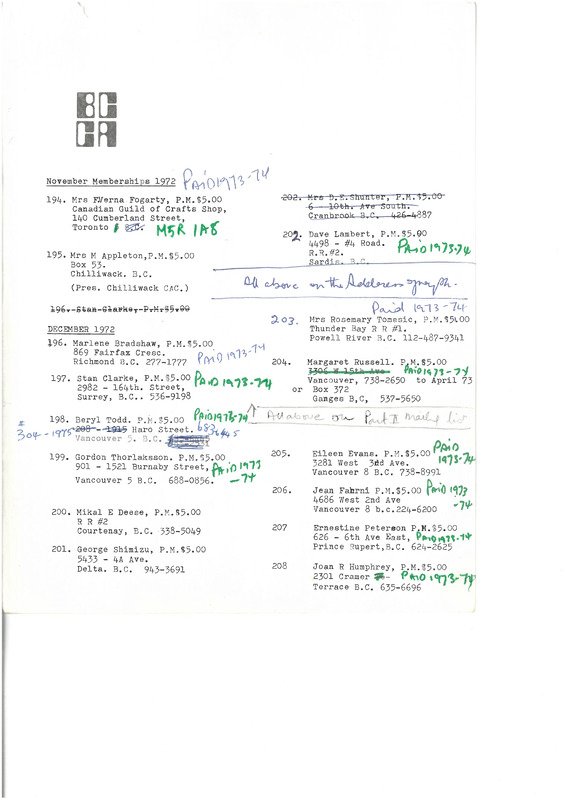 BC
CA
November Memberships 1972 PAID 1973-74
194. Mrs FVerna Fogarty, P.M.$5.00
Canadian Guild of Crafts Shop,
140 Cumberland Street,
Toronto B.C. M5R 1A8
195. Mrs M Appleton,P.M.$5.00
Box 53.
Chilliwack. B.C.
(Pres. Chilliwack CAC.)
196. Stan Clarke, P.M.$5.00
DECEMBER 1972
196. Marlene Bradshaw, P.M.$5.00
869 Fairfax Cresc.
Richmond B.C. 277-1777 PAID 1973-74
197. Stan Clarke, P.M.$5.00 PAID 1973-74
2982 - 164th. Street,
Surrey, B.C. 536-9198
198. Beryl Todd. P.M.$5.00 PAID 1973-74
# 304-1975 208 - 1915 Haro Street.
Vancouver 5. B.C.
199. Gordon Thorlaksson. P.M.$5.00
901 - 1521 Burnaby Street, PAID 1973
-74
Vancouver 5 B.C. 688-0856.
200. Mikal E Deese, P.M.$5.00
R R #2
Courtenay, B.C. 338-5049
201. George Shimizu, P.M.$5.00
5433 - 4A Ave.
Delta. B.C. 943-3691
202. Mrs D.E.Shunter, P.M.$5.00
6 - 10th. Ave South.
Cranbrook B.C. 426-4887
202. Dave Lambert, P.M.$5.00
4498 - #4 Road. PAID 1973-74
R.R.#2.
Sardis. B.C.
All above on the Addressograph.
Paid 1973-74
203. Mrs Rosemary Tomesic, P.M.$5.00
Thunder Bay R R #1.
Powell River B.C. 112-487-9341
204. Margaret Russell. P.M.$5.00
3306 W 15th Ave PAID 1973-74
Vancouver, 738-2650 to April 73
or Box 372
Ganges B,C, 537-5650
↑ All above on Part II Mailg list
205. Eileen Evans. P.M.$5.00 PAID
1973-74
3281 West 3rd Ave.
Vancouver 8 B.C. 738-8991
206. Jean Fahrni P.M.$5.00 PAID 1973
-74
4686 West 2nd Ave
Vancouver 8 b.c.224-6200
207 Ernestine Peterson P.M.$5.00
626 - 6th Ave East, PAID 1973-74
Prince Rupert,B.C. 624-2625
208 Joan R Humphrey, P.M.$5.00
2301 Cramer PAID 1973-74
Terrace B.C. 635-6696